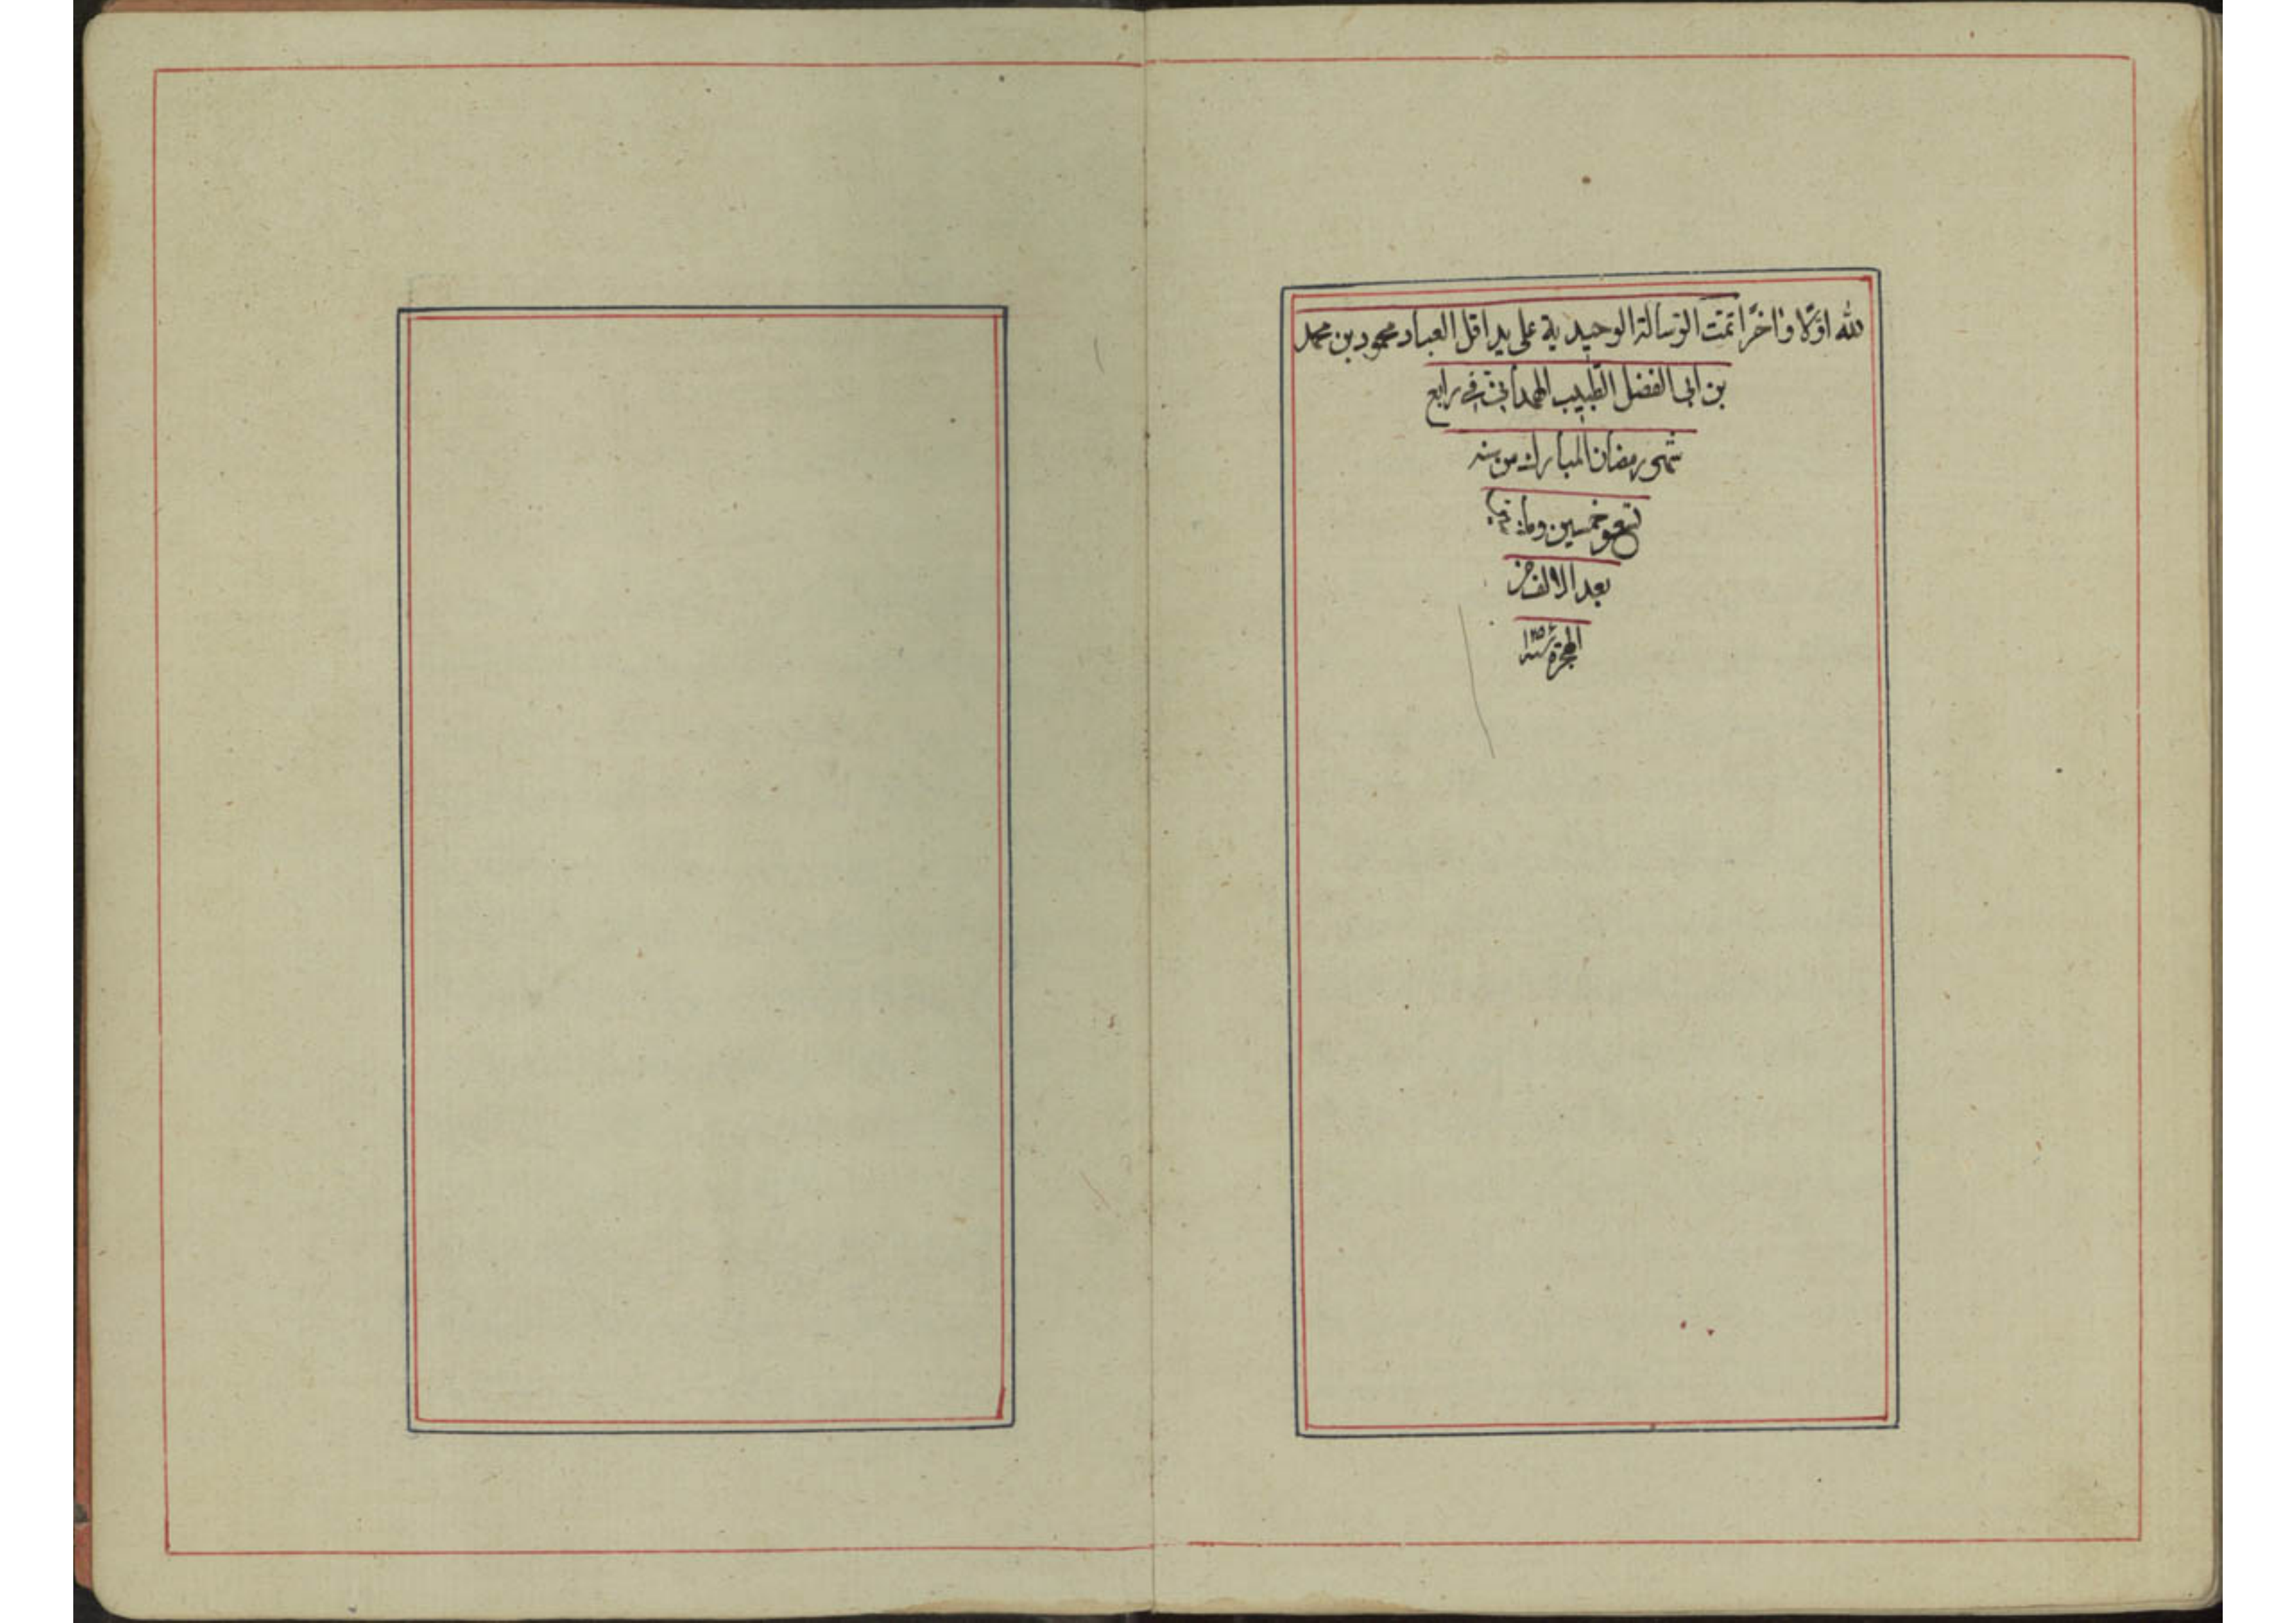 لله اوّلا وٰاخرًا تمّت الرّسالة الوحيدية على يد اقل العباد محمود بن محمد
بن ابی الفضل الطّبيب الهمدانی فی رابع
شهر رمضان المبارك من سنه
تسع وخمسين ومأتين
بعد الالف من
الهجرة